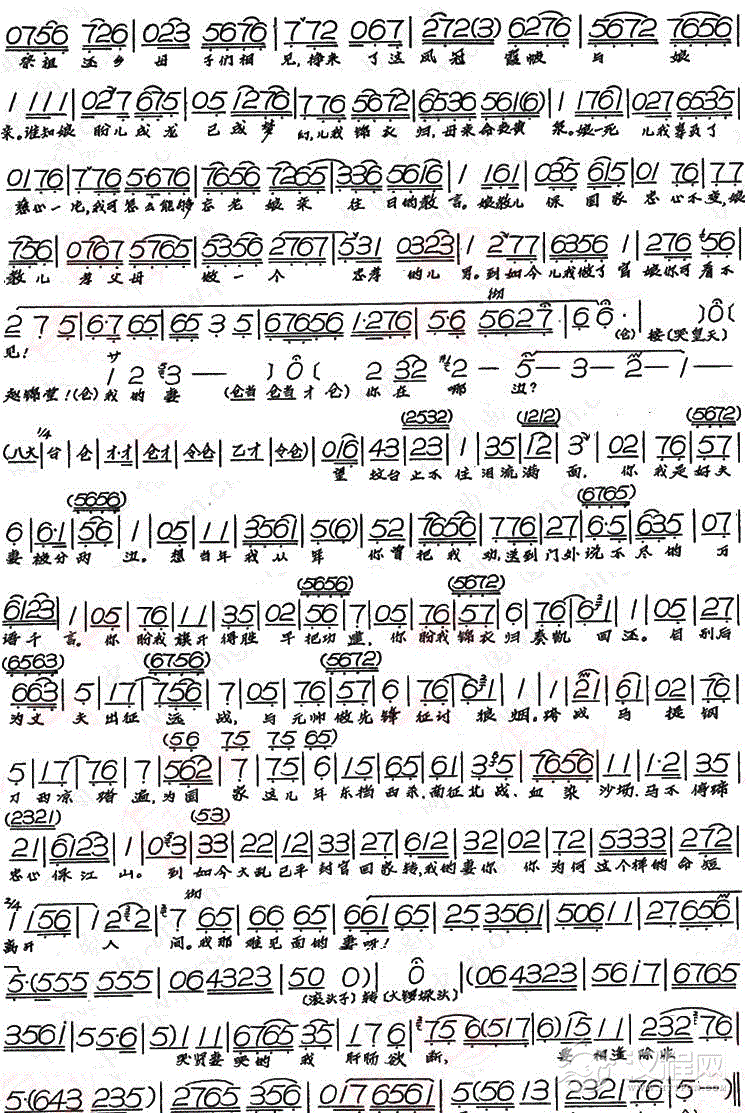 0756 726 | 023 5676 | 772 067 | 272(3) 6276 | 5672 7656 |
祭祖还乡 母子们相见,挣来了这凤冠霞帔与娘
1 111 | 027 675 | 05 1276 | 776 5672 | 6536 561(6) | 1 1761 | 027 6535 |
亲。谁知娘盼儿成龙已成梦幻,儿我锦衣归,母亲命归黄泉。娘一死儿我辜负了
0176 | 776 5676 | 7656 7265 | 336 5616 | 1 161 | 035 615 | 01 76 | 77
慈心一片,我可怎么能够忘老娘亲往日的教言。娘教儿保国家忠心不变,娘
756 | 0767 5765 | 5356 2767 | 531 0323 | 1 277 | 6356 1 | 276 56 |
教儿孝父母做一个忠孝的儿男。到如今儿我做了官娘你可看不
2 7 5 | 6·7 65 | 65 3 5 | 67656 1·276 | 5·6 5627 | 6 6· | )0(
见! (仓)接(哭皇天)
サ 1 2 3 — )0( 2 32 2 — 5 — 3 — 2 — 1 —
赵锦堂!(仓)我的妻 (仓当 仓当 才 仓) 你在哪边?
(2532) (1212) (5672)
1/4 (八大 | 台 | 仓 | 才·才 | 仓才 | 令仓 | 乙才 | 令仓) | 016 | 43 | 23 | 1 | 35 | 12 | 3 | 02 | 76 | 57 |
望坟台止不住泪流满面,你我是好夫
(5656) (6765)
6 | 6·1 | 56 | 1 | 05 | 11 | 3561 | 5(6) | 52 | 7656 | 776 | 27 | 6·5 | 635 | 07 |
妻被分两边。想当年我从军你曾把我劝,送到门外说不尽的万
(5656) (5672)
6123 | 1 | 05 | 76 | 11 | 35 | 02 | 56 | 7 | 05 | 76 | 57 | 6 | 76 | 61 | 1 | 05 | 27 |
语千言。你盼我旗开得胜早把功建,你盼我锦衣归奏凯回还。自别后
(6563) (6756) (5672)
663 | 5 | 17 | 756 | 7 | 05 | 76 | 57 | 6 | 76 | 63 | 1 | 1 | 21 | 61 | 02 | 76 |
为丈夫出征远战,与元帅做先锋征讨狼烟。跨战马提钢
(56 75 75 65)
5 | 17 | 76 | 7 | 562 | 7 | 75 | 6 | 15 | 65 | 61 | 35 | 7656 | 11 | 1·2 | 35 |
刀西凉踏遍,为国家这几年东挡西杀,南征北战。血染沙场,马不停蹄
(2321) (53)
21 | 6123 | 1 | 03 | 33 | 22 | 12 | 33 | 27 | 612 | 32 | 02 | 72 | 5333 | 272 |
忠心保江山。到如今大乱已平封官回家转,我的妻你你为何这个样的命短
2/4 1 156 | 1 22 | 7 65 | 66 65 | 661 65 | 25 3561 | 5061 11 | 27656 |
离开人间。我那难见面的妻呀!
5·(555 555 | 064323 | 50 0) | 0 | (064323 | 561 7 | 6765
(滚头子)转(大锣垛头)
3561 | 55·6 | 5) 111 | 6765 35 | 176 | 75 6(517 | 6) 1511 | 232 76 |
哭贤妻哭的我肝肠欲断, 要相逢除非
5·(643 235) | 2765 356 | 017 6561 | 5(56 13 | 2321 76 | 5 - ) ‖